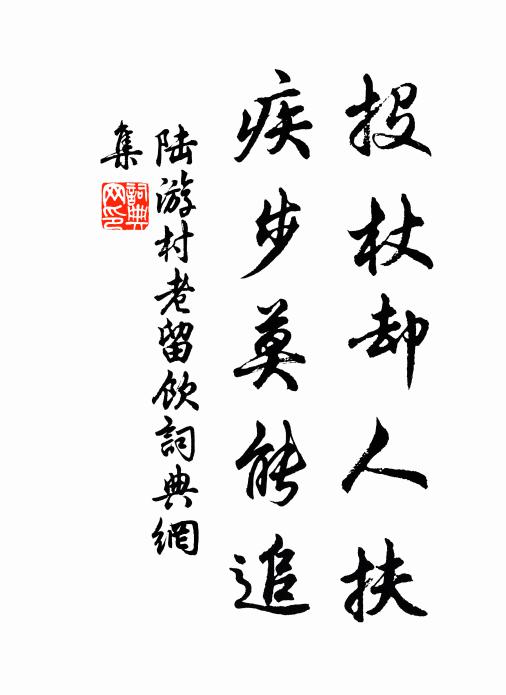 投杖却人扶
疾步莫能追
陆游村老留飲詞典網
集
詞典
网印